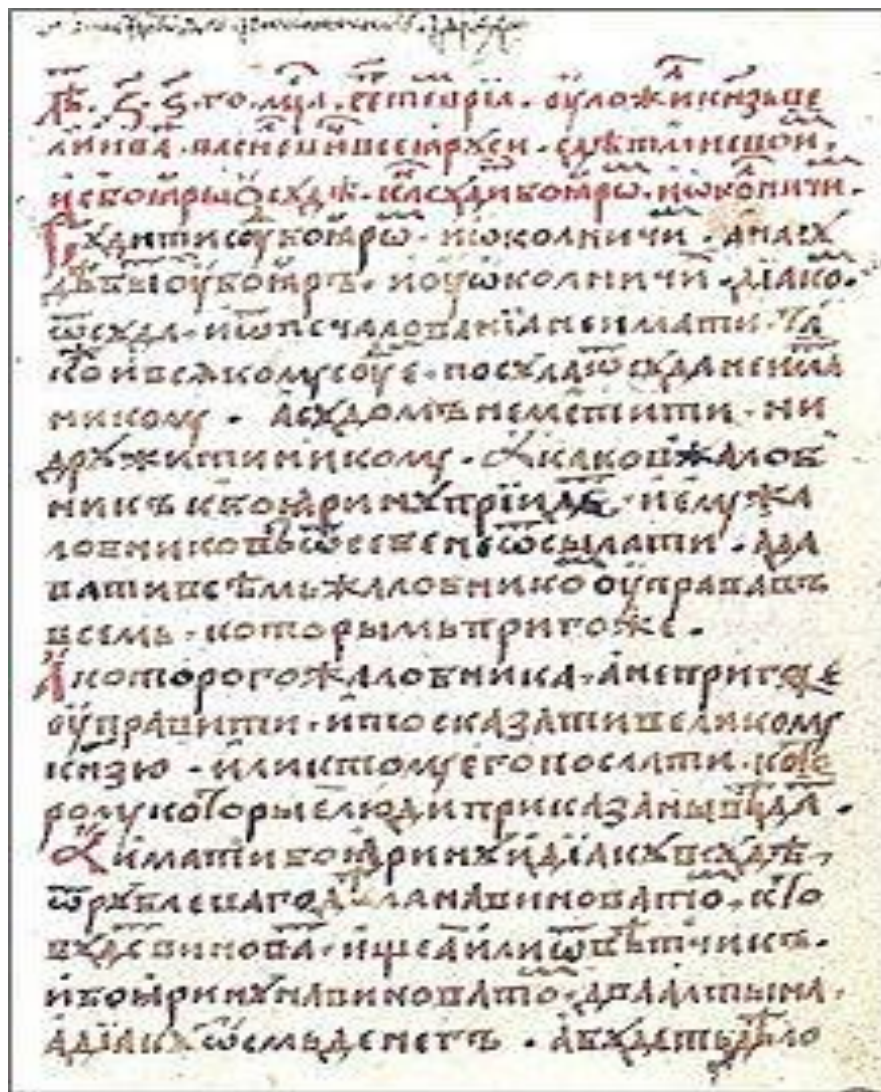 лѣ. ҂ѕ. ѕ. го. мцⷭа. сеⷫтеврїа. оуложи кнѧⷥь ве
ли иваⷩ василⷧевиⷱ всеѧ рꙋси. с дѣтми своиⷨи
и с боѧры ѡ сꙋдѣ. каⷦ сꙋдиⷮ боѧроⷨ. и ѡкоⷧничиⷨ.
Сꙋдити сꙋⷣ боѧроⷨ. и ѡколничиⷨ. а на сꙋ
дѣ быⷮ оу боѧръ. и оу ѡколничиⷯ. дїакоⷨ.
ѿ сꙋда. и ѿ печалованїа не имати. таⷦ
ж и всѧкомꙋ соуⷣе. посꙋла ѿ сꙋда не имаⷮ
никомꙋ. а сꙋдомъ не мстити. ни
дрꙋжити никомꙋ. А каков жалоб
никъ к боѧринꙋ прїидеⷮ. и емꙋ жа
лобниковъ ѿ себе не ѿсылати. а да
вати всѣмь жалобникоⷨ оуправа въ
всемь. которымь пригоже.
А которого жалобника. а не пригоже
оуправити. и то сказати великомꙋ
кнѧзю. или к томꙋ его послати. кото
ромꙋ которые люди приказаны вѣдаⷮ.
А имати боѧринꙋ и дїакꙋ в сꙋдѣ.
ѿ рꙋблеваго дѣла на виноватоⷨ. кто
бꙋдеⷮ виноваⷮ. ищеа или ѿвѣтчикъ.
и боѧринꙋ на виноватоⷨ. два алтына.
а дїакꙋ ѡсмь денегъ. а бꙋдеть дѣло